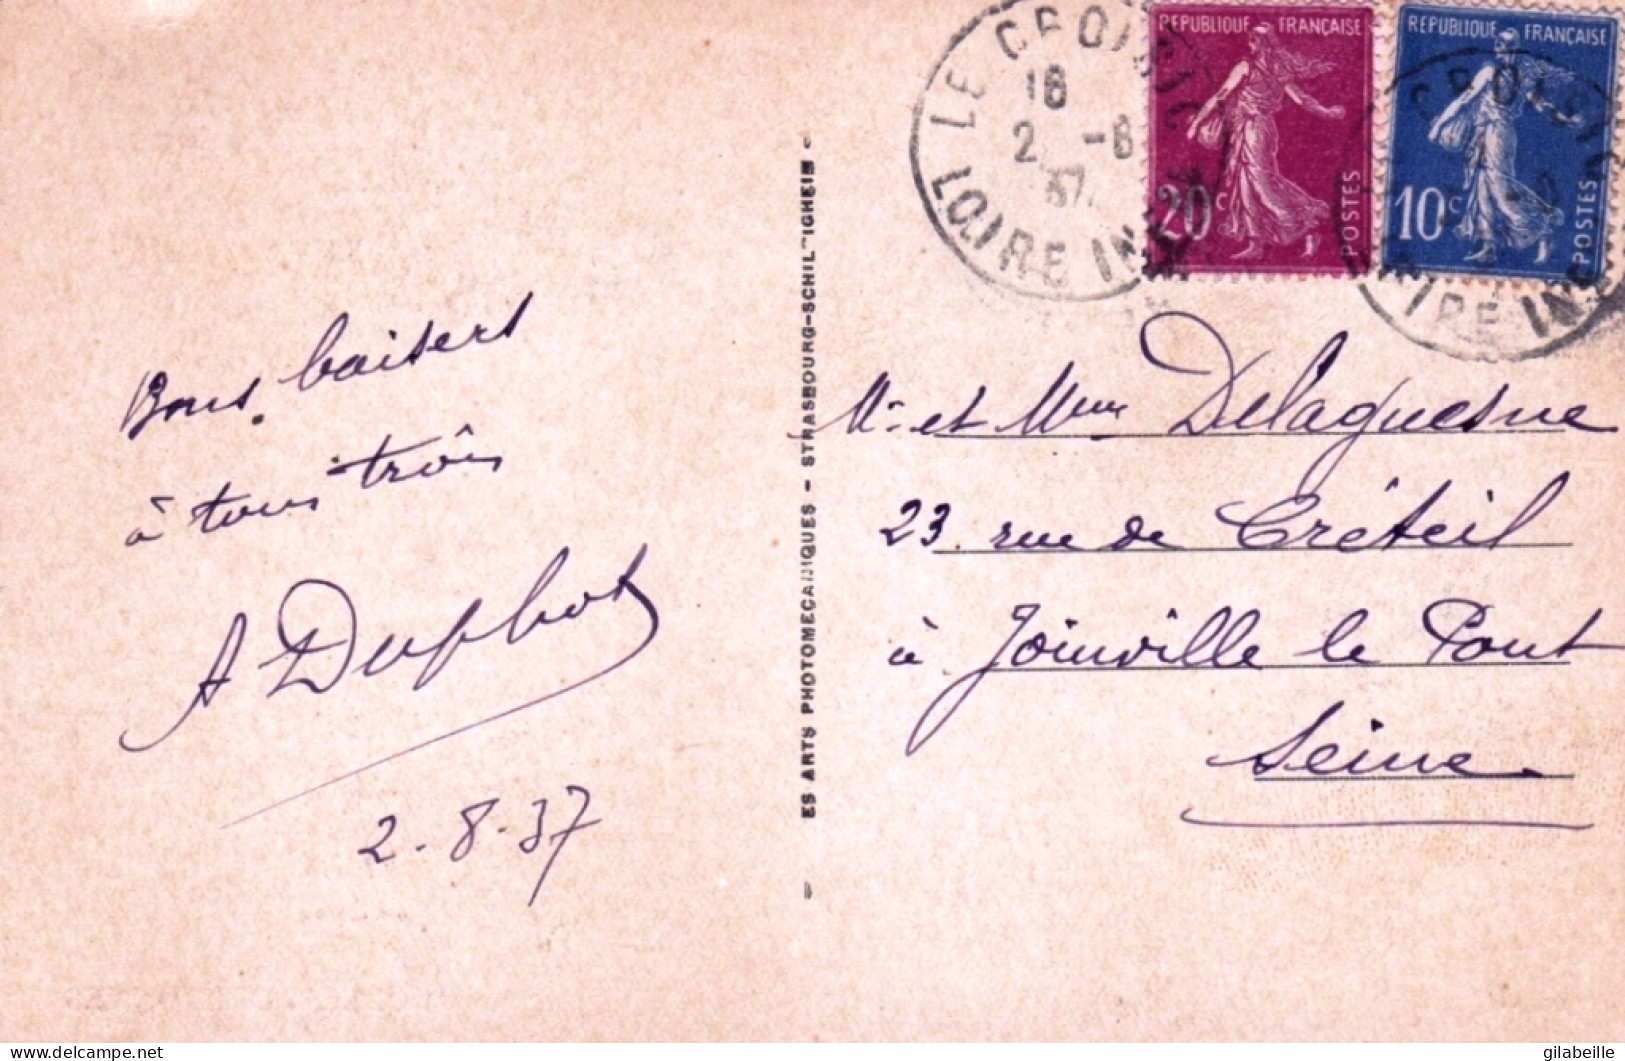 Bons baisers
à tous trois
A Duphot
2-8-37
ES ARTS PHOTOMECANIQUES - STRASBOURG-SCHILTIGHEIM -
LE CROISIC
LOIRE INF
18
2 -8
37
REPUBLIQUE FRANÇAISE
20c
POSTES
REPUBLIQUE FRANÇAISE
10c
POSTES
CROISIC
LOIRE INF
Mr et Mme Delaquesne
23 rue de Créteil
à Joinville le Pont
Seine
www.delcampe.net
gilabeille